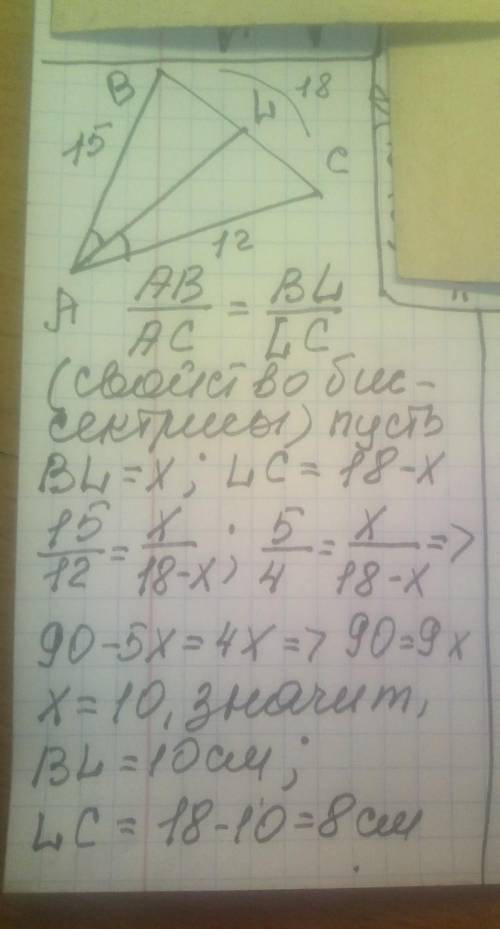 B
18
L
15
C
12
A
AB/AC = BL/LC
(свойство бис-
сектрисы) пусть
BL = x; LC = 18-x
15/12 = x/18-x; 5/4 = x/18-x =>
90-5x=4x => 90=9x
x=10, значит,
BL=10см;
LC = 18-10=8см